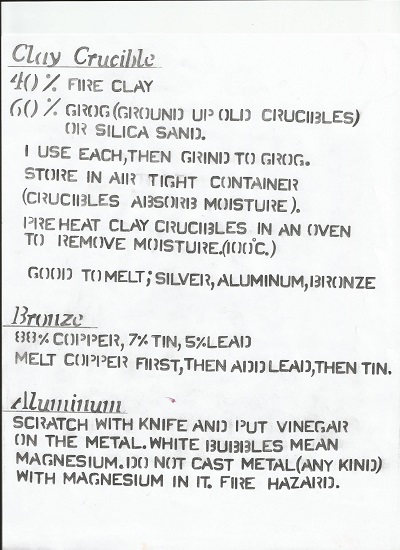 Clay Crucible
40% FIRE CLAY
60% GROG (GROUND UP OLD CRUCIBLES)
OR SILICA SAND.
I USE EACH, THEN GRIND TO GROG.
STORE IN AIR TIGHT CONTAINER
(CRUCIBLES ABSORB MOISTURE).
PREHEAT CLAY CRUCIBLES IN AN OVEN
TO REMOVE MOISTURE.(100°C.)
GOOD TO MELT; SILVER, ALUMINUM, BRONZE
Bronze
88% COPPER, 7% TIN, 5% LEAD
MELT COPPER FIRST, THEN ADD LEAD, THEN TIN.
Aluminum
SCRATCH WITH KNIFE AND PUT VINEGAR
ON THE METAL. WHITE BUBBLES MEAN
MAGNESIUM. DO NOT CAST METAL (ANY KIND)
WITH MAGNESIUM IN IT. FIRE HAZARD.